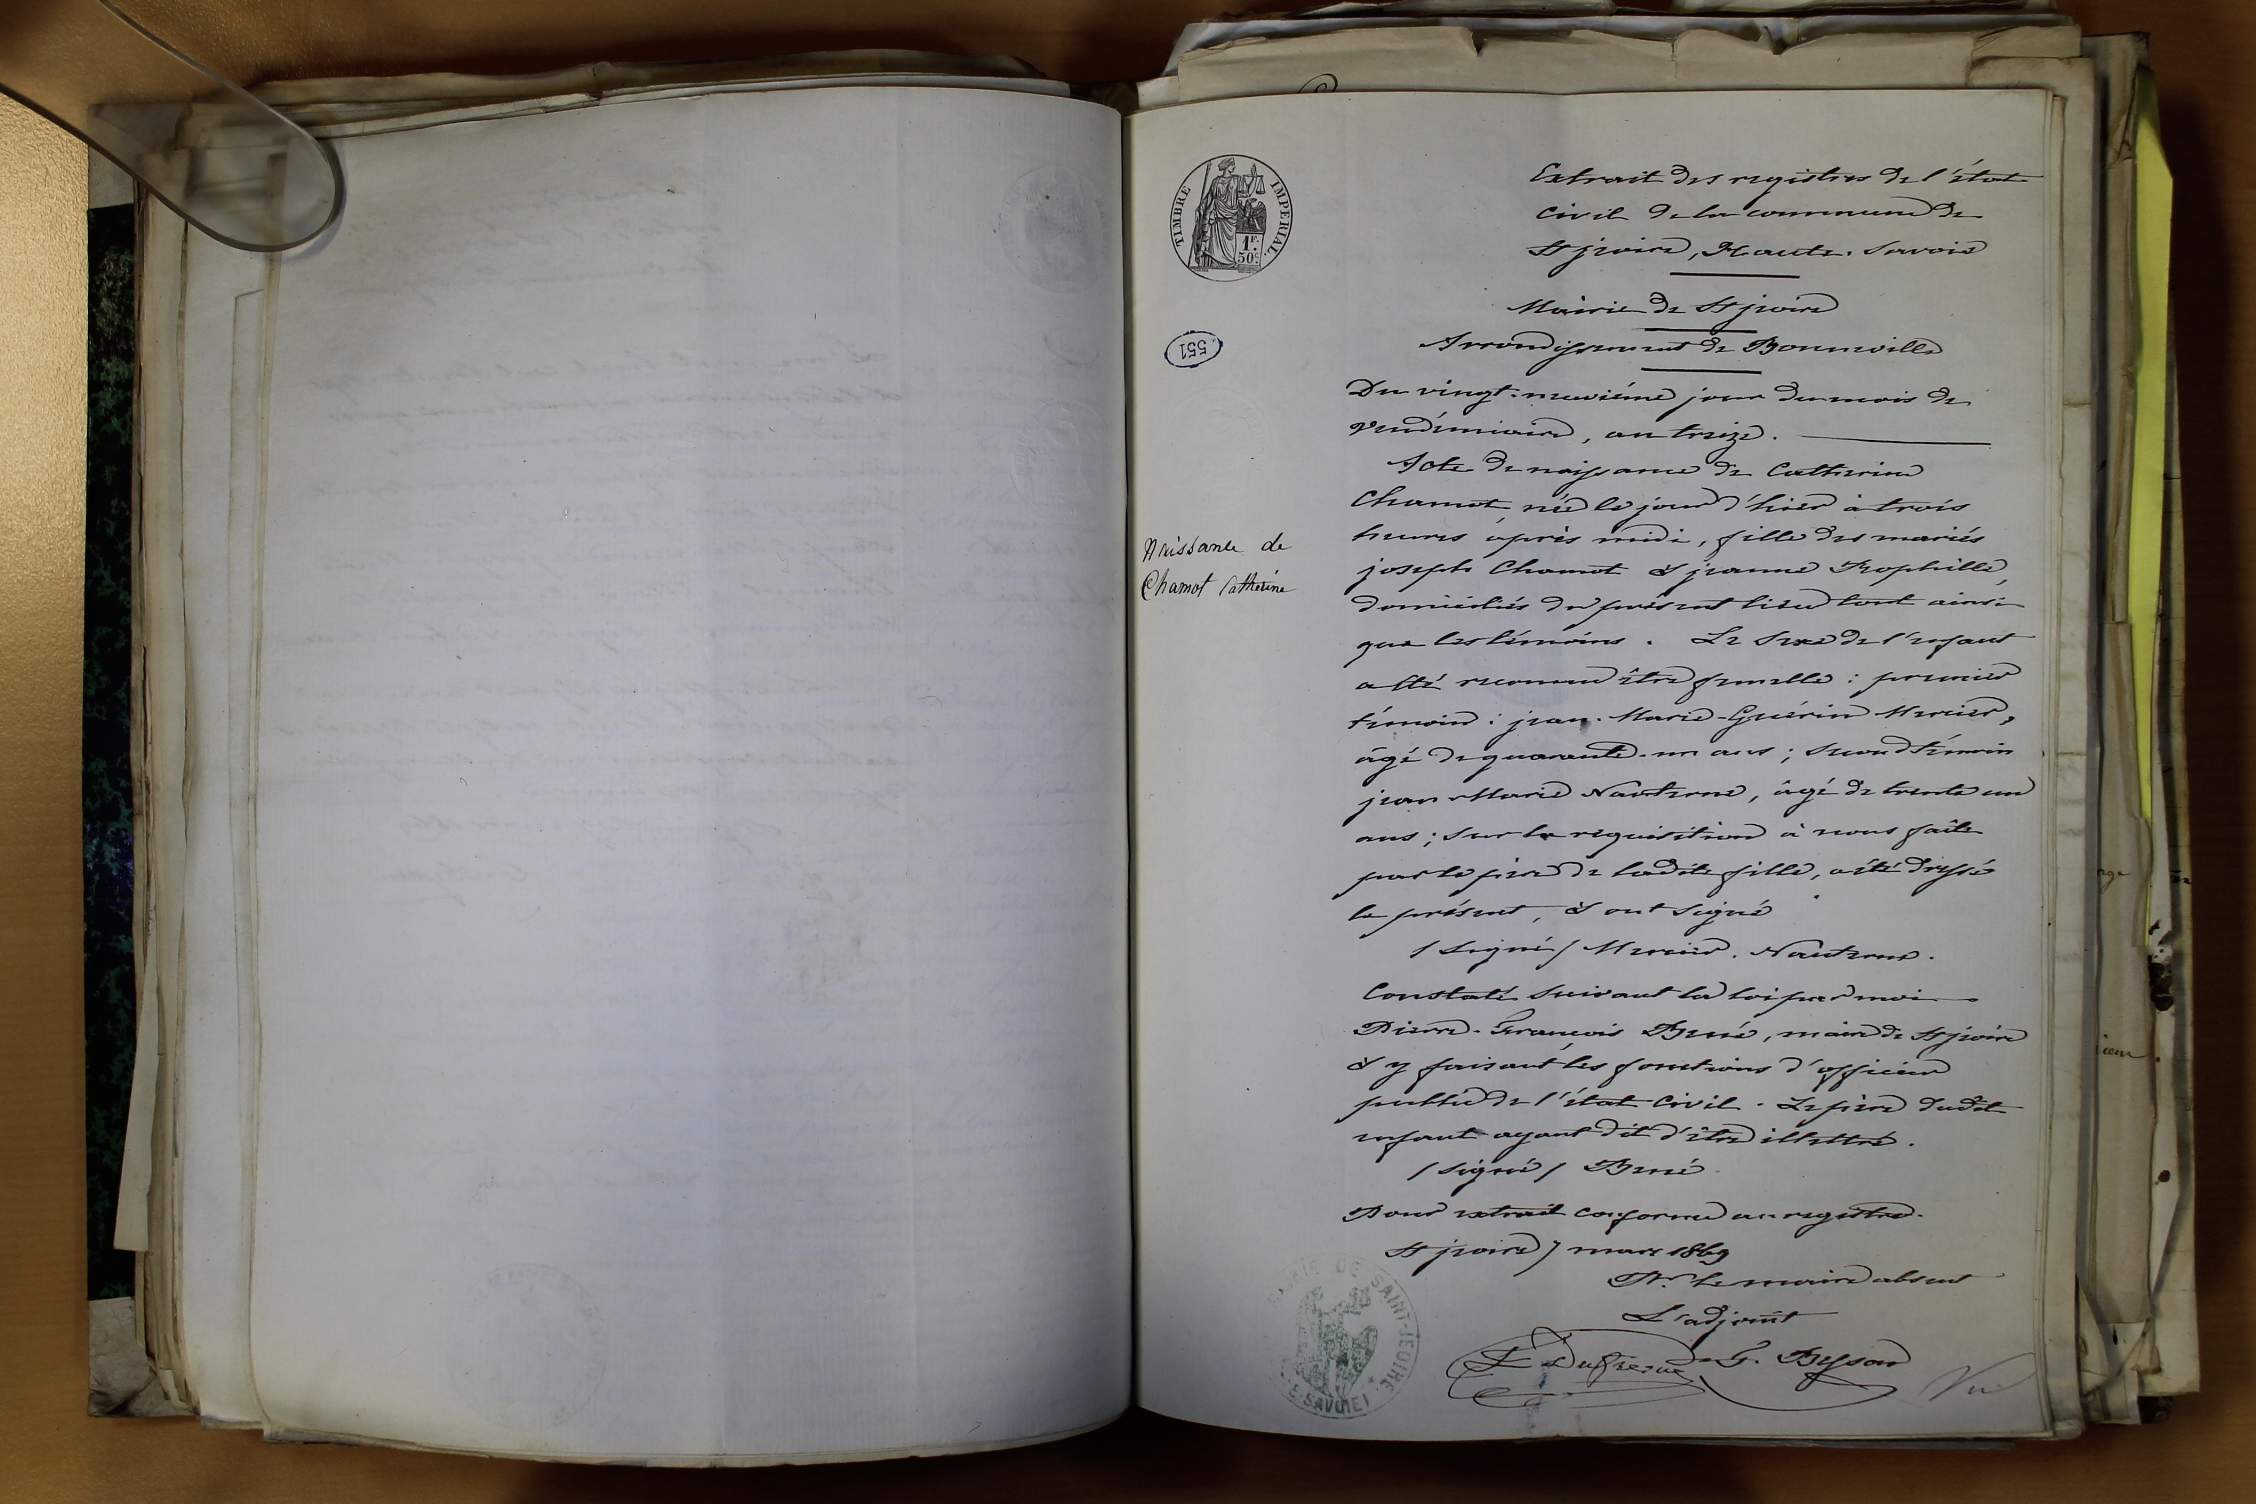 TIMBRE IMPERIAL
1F.
50c
551
Extrait des registres de l'état
civil de la commune de
St jeoire, Haute-Savoie
Mairie de St jeoire
Arrondissement de Bonneville
Du vingt-neuvième jour du mois de
vendémiaire, an treize.
Acte de naissance de Catherine
Chamot, née le jour d'hier à trois
heures après midi, fille des mariés
joseph Chamot & jeanne
domiciliés du présent lieu tout ainsi
que les témoins. Le sexe de l'enfant
a été reconnu être femelle : premier
témoin : jean-Marie-Guérin Mercier,
âgé de quarante-un ans ; second témoin
jean Marie, âgé de trente un
ans ; sur la requisition à nous faite
par le père de ladite fille, a été dressé
le présent, & ont signé
/Signé/ Mercier.
Constaté suivant la loi par moi
Pierre-François, maire de St jeoire
& y faisant les fonctions d'officier
public de l'état civil. Le père dudit
enfant ayant dit d'être illettré.
/signé/
Pour extrait conforme au registre.
St jeoire 7 mars 1869
Pr. le maire absent
L'adjoint
Vu
Naissance de
Chamot Catherine
MAIRIE DE SAINT-JEOIRE
(E-SAVOIE)